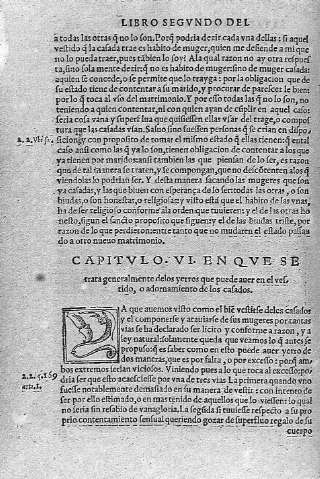 LIBRO SEGVNDO DEL
à todas las otras q̃ no lo son. Porq̃ podria dezir cada vna dellas: si aquel
vestido q̃ la casada trae es habito de muger, quien me defiende a mi que
no lo pueda traer, pues tãbien lo soy? A la qual razon no ay otra respues
ta, sino sola mente dezir q̃ no es habito de muger sino de muger casada:
a quien se concede, o se permite que lo trayga: por la obligacion que de
su estado tiene de contentar a su marido, y procurar de parescer le bien
por lo q̃ toca al vso del matrimonio. Y por esso todas las q̃ no lo son, no
teniendo a quien contentar, ni con quien ayan de cũplir en aquel caso:
seria cosa vana y superflua que quisiessen ellas vsar del trage, o compo
stura que las casadas vsan. Saluo sino fuessen personas q̃ se crian en dispo
sicion y con proposito de tomar el mismo estado q̃ ellas tienen: q̃ en tal
caso ansi como las q̃ ya lo son, tienen obligacion de contentar a los que
ya tienen por maridos: ansi tambien las que piensan de lo ser, es razon
que de tal manera se traten, y se compongan, que no descõtenten a los q̃
viendolas lo podrian ser. Y desta manera sacando las mugeres que son
ya casadas, y las que biuen con esperança de lo ser: todas las otras, o son
biudas, o son honestas, o religiosas: y visto esta que el habito de las vnas,
ha de ser religioso conforme a la orden que tuuieren: y el de las otras ho
nesto, sigun el sancto proposito que siguen: y el de las biudas triste, por
razon de lo que perdieron: entre tanto que no mudaren el estado passan
do a otro nueuo matrimonio.
2.2.
CAPITVLO. VI. EN QVE SE
trata generalmente de los yerros que puede auer en el ves-
tido, o adornamiento de los casados.
YA que auemos visto como el biẽ vestirse de los casados
y el componerse y atauiarse de sus mugeres por tantas
vias se ha declarado ser licito y conforme a razon, y a
ley natural: solamente queda que veamos lo q̃ antes se
propuso: q̃ es saber como en esto puede auer yerro de
dos maneras, que es por falta, o por excesso: porq̃ am-
bos extremos serian viciosos. Viniendo pues a lo que toca al excesso: po
dria ser que esto acaesciesse por vna de tres vias. La primera quando vno
fuesse notablemente demasiado en su manera de vestir: con intento de
ser por ello estimado, o en mas tenido de aquellos que lo viessen: lo qual
no seria sin resabio de vanagloria. La segũda si tuuiesse respecto a su pro
prio contentamiento sensual queriendo gozar de superfluo regalo de su
cuerpo